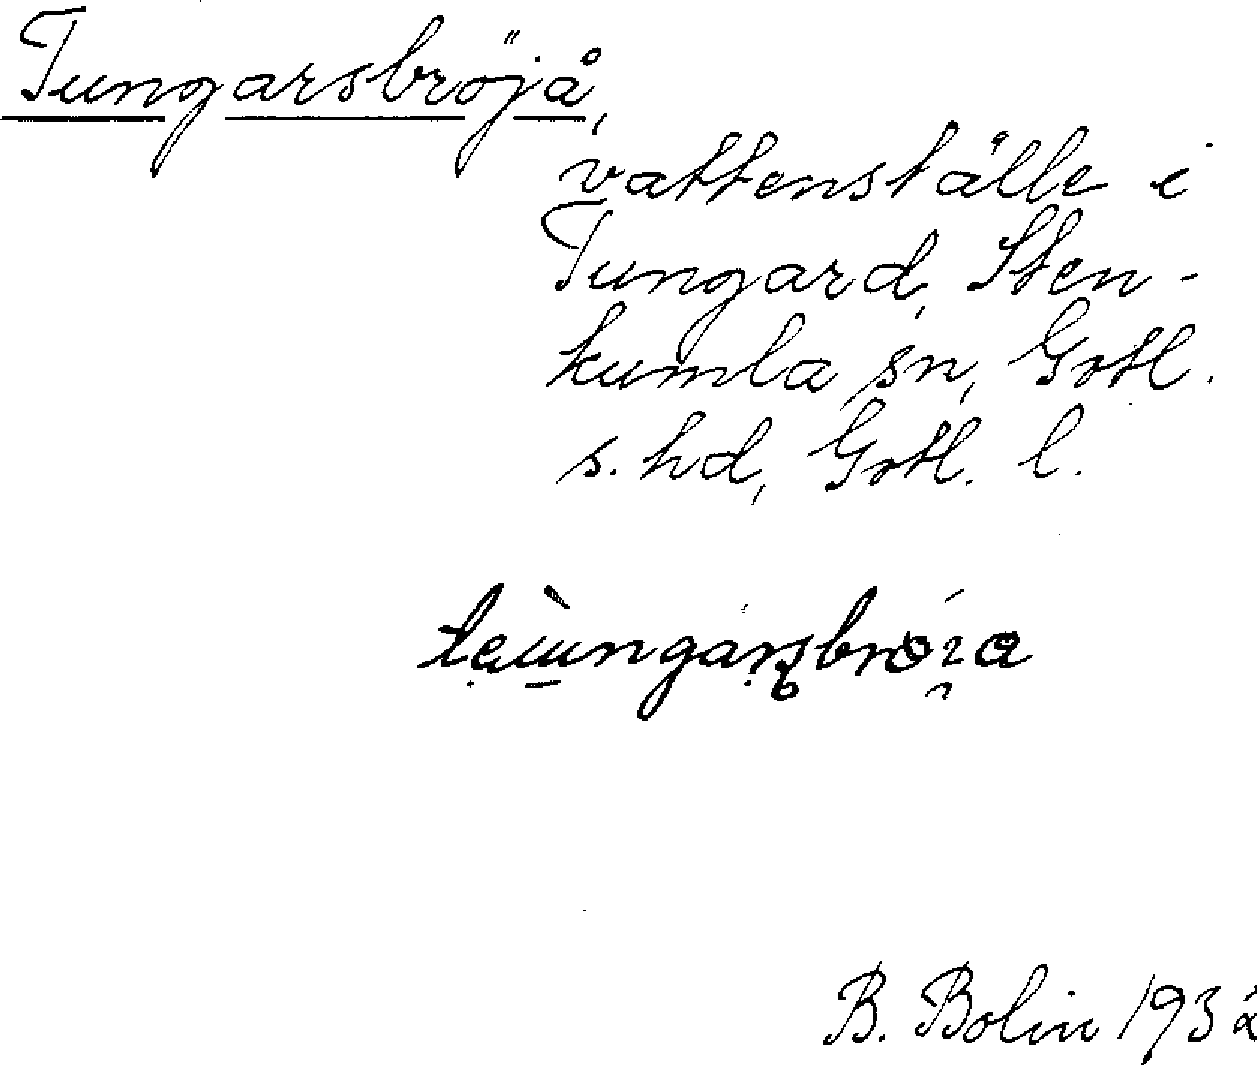 Tungarsbröjå,
vattenställe i
Tungard, Sten-
kumla sn, Gotl.
s. hd, Gotl. l.
B. Bolin 1932